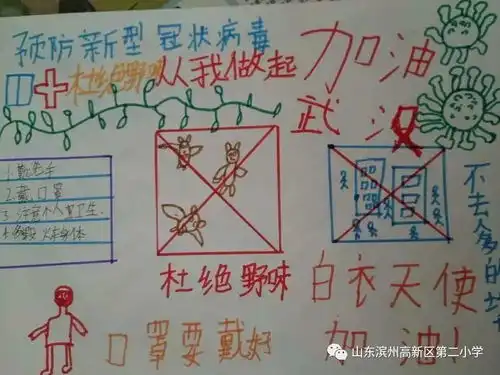 预防新型冠状病毒
杜绝野味从我做起
加油
武汉
1.勤洗手
2.戴口罩
3.注意个人卫生.
4.锻炼身体
杜绝野味
不去人多的地
白衣天使
加油!
口罩要戴好
山东滨州高新区第二小学